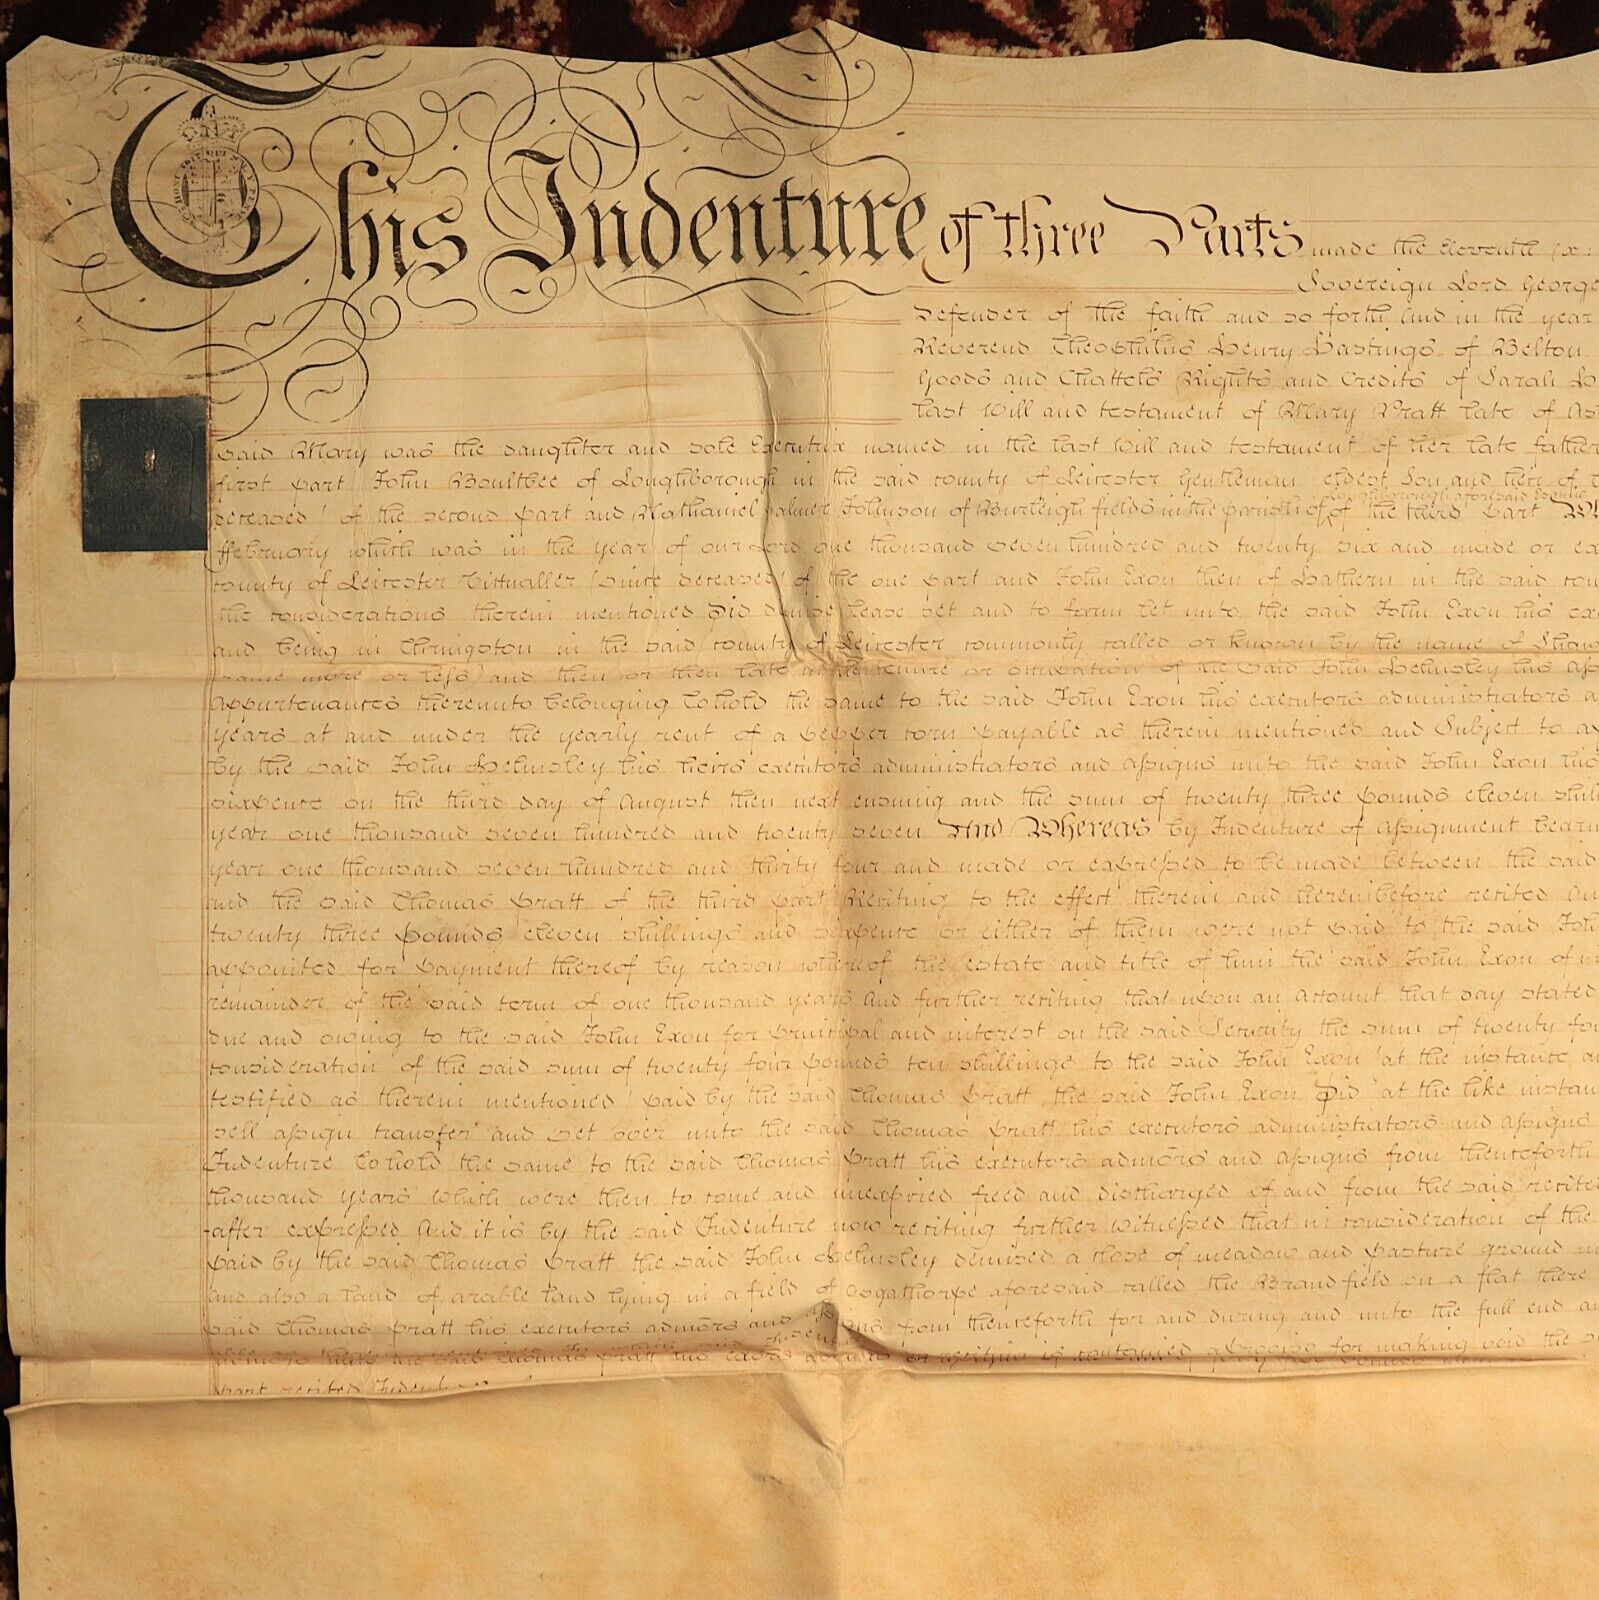 This Indenture of three Parts made the Eleventh
Sovereign Lord George
Defender of the faith and so forth And in the year
Reverend Theophilus Henry Hastings of Belton
Goods and Chattels Rights and Credits of Sarah
last Will and testament of Mary Pratt late of
said Mary was the daughter and sole Executrix named in the last Will and testament of her late father
first part John Boultbee of Loughborough in the said county of Leicester Gentleman eldest Son and heir of
Loughborough aforesaid Esquire
deceased) of the second part and Nathaniel Palmer Johnson of Burleigh fields in the parish of of the third part
ffebruary which was in the year of our Lord one thousand seven hundred and twenty six and made or
county of Leicester Victualler (since deceased) of the one part and John Exon then of Hathern in the said
the considerations therein mentioned Did demise lease set and to farm let unto the said John Exon his
and being in Thringston in the said county of Leicester commonly called or known by the name of
same more or less) and then or then late in the tenure or occupation of the said John Helmsley his
Appurtenances thereunto belonging To hold the same to the said John Exon his executors administrators
years at and under the yearly rent of a pepper corn payable as therein mentioned and Subject to
by the said John Helmsley his heirs executors administrators and assigns unto the said John Exon his
sixpence on the third day of August then next ensuing and the sum of twenty three pounds eleven
year one thousand seven hundred and twenty seven And Whereas by Indenture of Assignment
year one thousand seven hundred and thirty four and made or expressed to be made between the said
and the said Thomas Pratt of the third part Reciting to the effect therein and hereinbefore recited
twenty three pounds eleven shillings and sixpence or either of them were not paid to the said
appointed for payment thereof by reason whereof the estate and title of him the said John Exon of
remainder of the said term of one thousand years And further reciting that upon an account that day stated
due and owing to the said John Exon for principal and interest on the said Security the sum of twenty
consideration of the said sum of twenty four pounds ten shillings to the said John Exon (at the instance
testified as therein mentioned) paid by the said Thomas Pratt the said John Exon Did at the like
sell assign transfer and set over unto the said Thomas Pratt his executors administrators and assigns
Indenture To hold the same to the said Thomas Pratt his executors admors and assigns from thenceforth
thousand years which were then to come and unexpired freed and discharged of and from the said
after expressed And it is by the said Indenture now reciting further witnessed that in consideration of the
paid by the said Thomas Pratt the said John Helmsley demised a close of meadow and pasture ground
and also a land of arable land lying in a field of Osgathorpe aforesaid called the Brand field on a flat there
said Thomas Pratt his executors admors and from thenceforth for and during and unto the full end
the said Thomas Pratt his admors reciting is contained a proviso for making void the
part recited Indenture